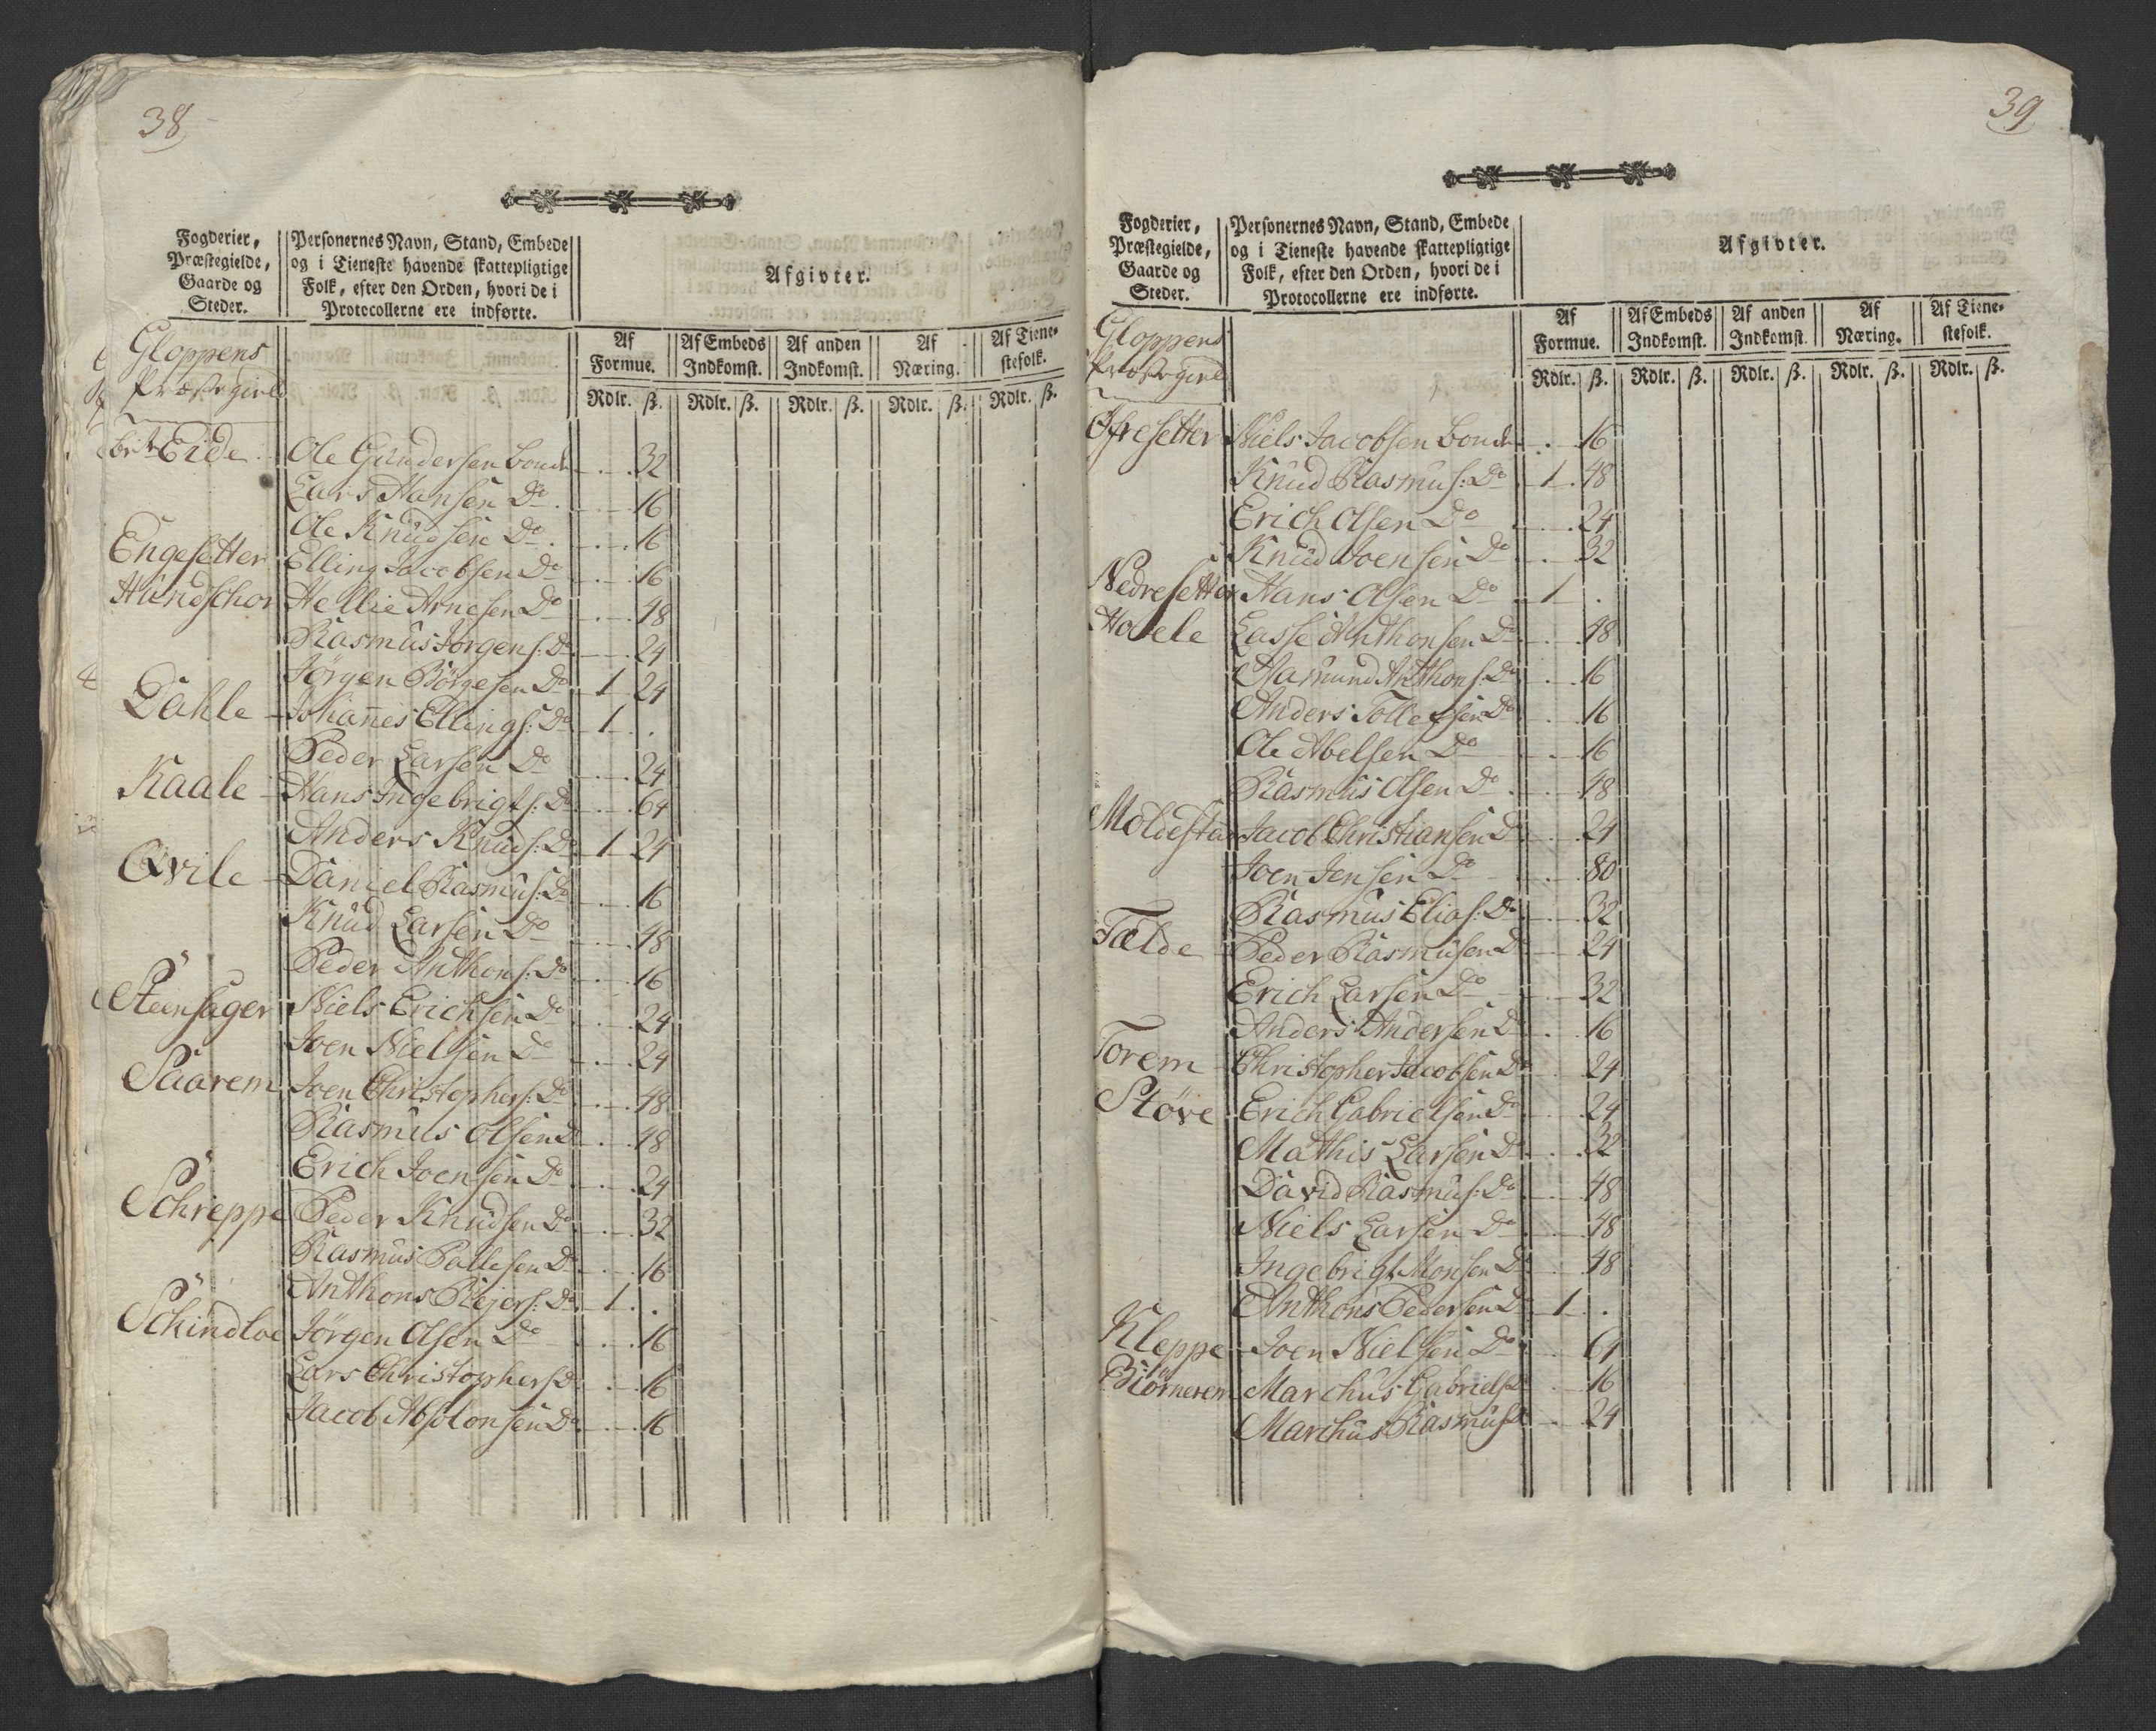 38
Fogderier,
Præstegielde,
Gaarde og
Steder.
Personernes Navn, Stand, Embede
og i Tieneste havende skattepligtige
Folk, efter den Orden, hvori de i
Protocollerne ere indførte.
Afgivter.
Af Formue. Af Embeds Indkomst. Af anden Indkomst. Af Næring. Af Tienestefolk.
Rdlr. ß. Rdlr. ß. Rdlr. ß. Rdlr. ß. Rdlr. ß.
Gloppens
Præstegield
Eide Ole Gundersen bonde 32
Lars Hansen Do 16
Ole Knudsen Do 16
Engesetter Elling Jacobsen Do 16
Hundschor Hellie Arnesen Do 48
Rasmus Jørgens: Do 24
Jørgen Børgesen Do 1 24
Dahle Johannes Ellings: Do 1 .
Peder Larsen Do 24
Kaale Hans Ingebrigts: Do 64
Anders Knuds: Do 1 24
Qvile Daniel Rasmus: Do 16
Knud Larsen Do 48
Peder Anthons: Do 16
Steensager Niels Erichsen Do 24
Joen Nielsen Do 24
Saarem Joen Christophers: Do 48
Rasmus Olsen Do 48
Erich Joensen Do 24
Schreppe Peder Knudsen Do 32
Rasmus Pallesen Do 16
Anthons Rejers: Do 1 .
Schindloe Jørgen Olsen Do 16
Lars Christophers Do 16
Jacob Absolonsen Do 16
39
Fogderier,
Præstegielde,
Gaarde og
Steder.
Personernes Navn, Stand, Embede
og i Tieneste havende skattepligtige
Folk, efter den Orden, hvori de i
Protocollerne ere indførte.
Afgivter.
Af Formue. Af Embeds Indkomst. Af anden Indkomst. Af Næring. Af Tienestefolk.
Rdlr. ß. Rdlr. ß. Rdlr. ß. Rdlr. ß. Rdlr. ß.
Gloppens
Præstegield
Øfresetter Niels Jacobsen bonde 16
Knud Rasmus: Do 1 48
Erich Olsen Do 24
Knud Joensen Do 32
Nedresetter Hans Olsen Do 1 .
Hovele Lasse Anthonsen Do 48
Aamund Anthons: Do 16
Anders Tollefsen Do 16
Ole Abelsen Do 16
Rasmus Olsen Do 48
Moldestad Jacob Christiansen Do 24
Joen Jensen Do 80
Rasmus Elias: Do 32
Fælde Peder Rasmusen Do 24
Erich Larsen Do 32
Anders Andersen Do 16
Torem Christopher Jacobsen Do 24
Støve Erich Gabrielsen Do 24
Mathis Larsen Do 32
David Rasmus: Do 48
Niels Larsen Do 48
Ingebrigt Monsen Do 48
Anthons Pedersen Do 1 .
Kleppe Joen Nielsen Do 64
Biørnerem Marchus Gabriels Do 16
Marchus Rasmus Do 24